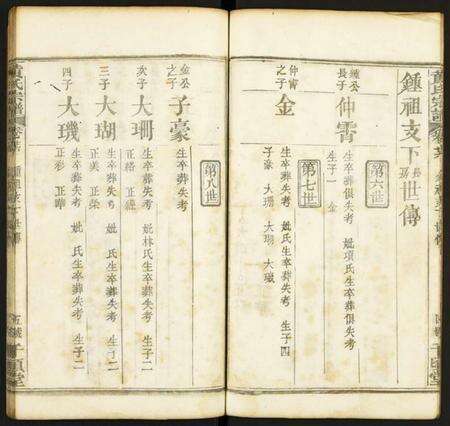 鍾祖支下長房世傳
第六世
鍾公長子
仲霄
生卒葬俱失考 妣項氏生卒葬俱失考
生子一 金
第七世
仲霄之子
金
生卒葬失考 妣 氏生卒葬失考 生子四
子豪 大珊 大瑚 大璣
第八世
金公之子
子豪
生卒葬失考
次子
大珊
生卒葬失考 妣林氏生卒葬失考 生子二
三子
大瑚
生卒葬失考 妣 氏生卒葬失考 生子二
正美 正榮
四子
大璣
生卒葬失考 妣 氏生卒葬失考 生子二
正彩 正曄